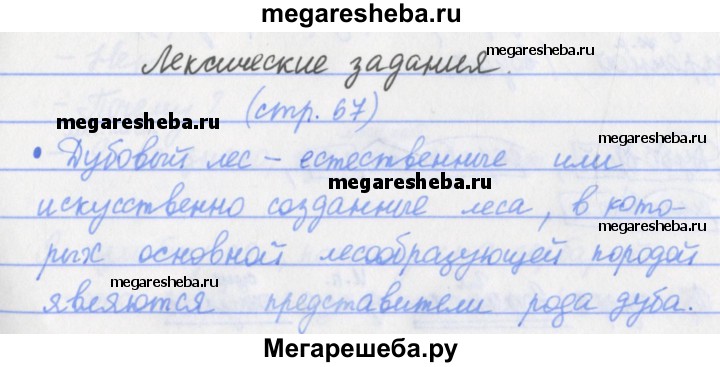 megaresheba.ru
Лексические задания.
megaresheba.ru
(стр. 67)
megaresheba.ru
megaresheba.ru
• Дубовый лес – естественные или
megaresheba.ru
искусственно созданные леса, в кото-
рых основной лесообразующей породой
megaresheba.ru
megaresheba.ru
являются представители рода дуба.
Мегарешеба.ру